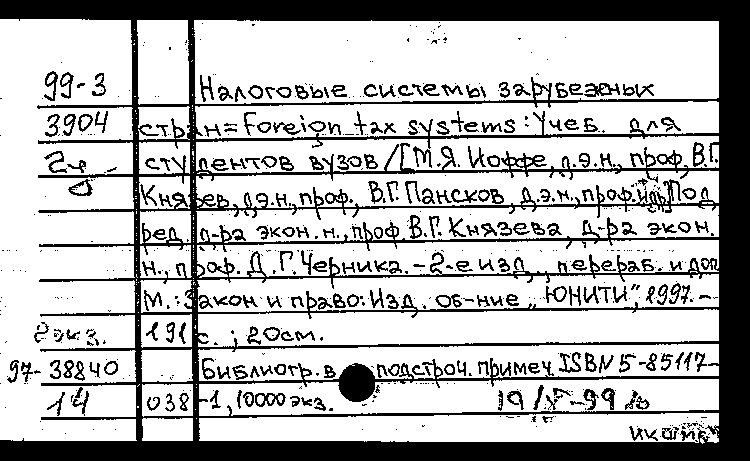 99-3 Налоговые системы зарубежных
3904 стран = Foreign tax systems : Учеб. для
студентов вузов / [М.Я. Иоффе, д.э.н., проф., В.Г.
Князев, д.э.н., проф., В.Г. Пансков, д.э.н., проф. и др.] Под
ред. д-ра экон. н., проф. В.Г. Князева, д-ра экон.
н., проф. Д.Г. Черника. - 2-е изд., перераб. и доп
М.: Закон и право: Изд. об-ние „ЮНИТИ", 1997. -
2 экз. 191 с. ; 20 см.
97-38840 Библиогр. в подстроч. примеч. ISBN 5-85117-
14 038-1, 10000 экз. 19/